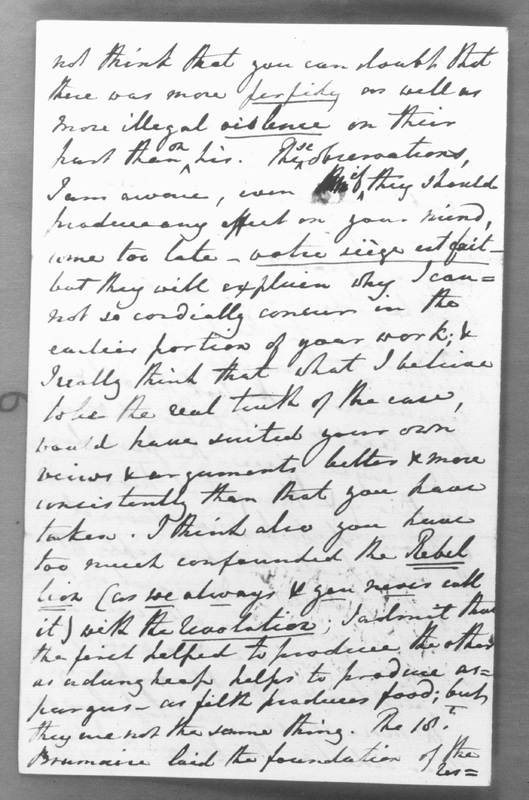 not think that you can doubt that
there was more perfidy as well as
more illegal violence on their
part than on his. These observations,
I am aware, even if they should
produce any effect on your mind,
come too late – votre siège est fait –
but they will explain why I can=
not so cordially concur in the
earlier portion of your work; &
I really think that what I believe
to be the real truth of the case,
would have suited your own
views & arguments better & more
consistently than that you have
taken. I think also you have
too much confounded the Rebel
lion (as we always & you never call
it) with the Revolution; I admit that
the first helped to produce the other
as a dung heap helps to produce as=
paragus – as filth produces food; but
they are not the same thing. The 18.t
Brumaire laid the foundation of the
Res=